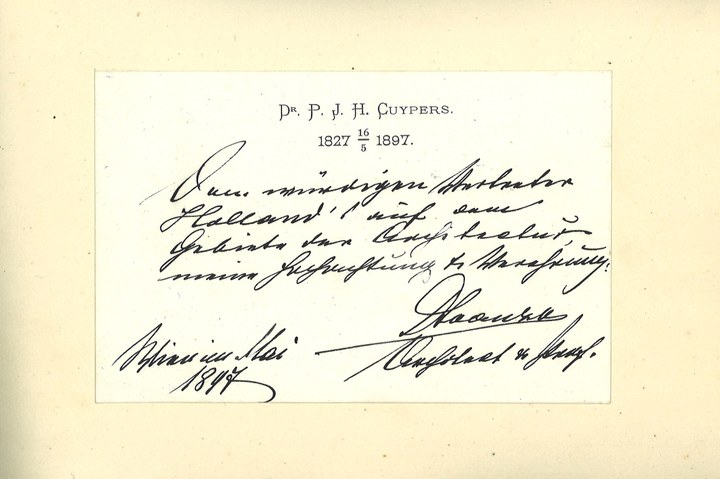 Dr. P. J. H. CUYPERS.
1827 16/5 1897.
Dem würdigen Vertreter
Holland's auf dem
Gebiete der Architectur,
meine Hochachtung & Verehrung.
Wien im Mai
Architect & Prof.
1897